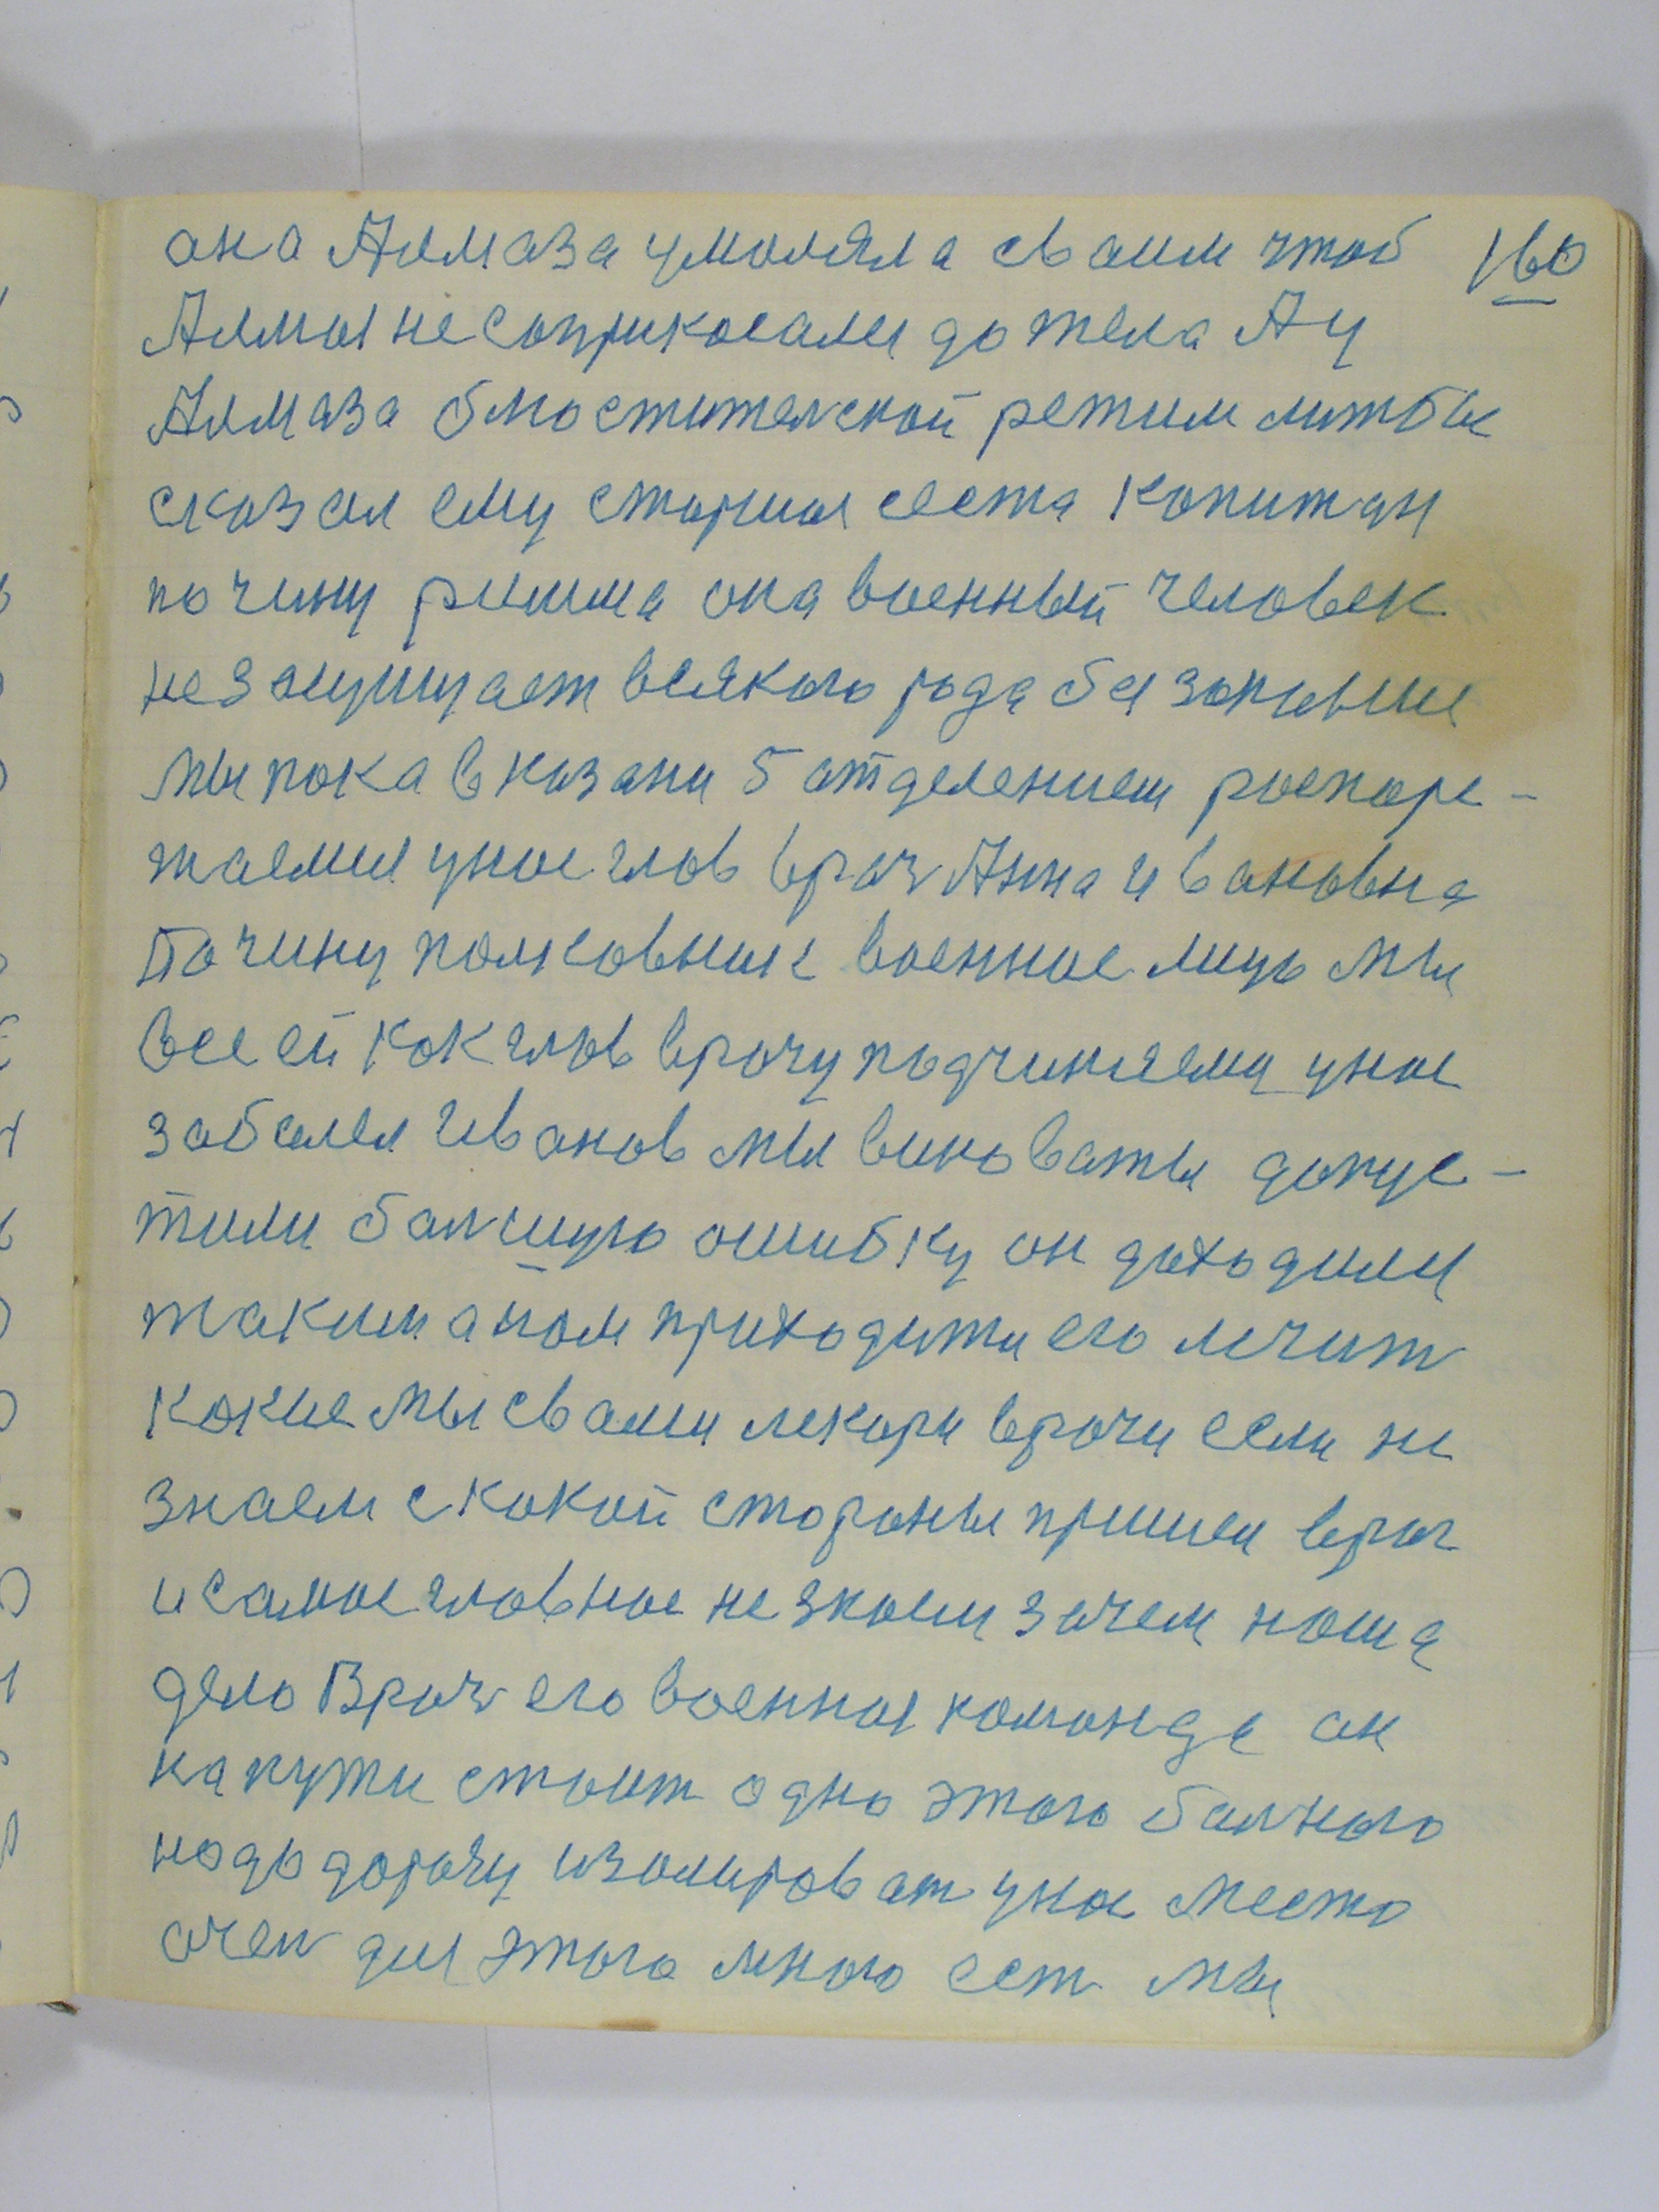 она Алмаза умоляла сваим чтоб 160
Алмы не соприкосалия до тела А у
Алмаза блюстительской режим литбы
сказал ему старшая сеста капитан
по чину римма она военный человек
не  всякого рода базоп
мы пока в казани 5 атделением роспоре-
жаемия унос глов врач Анна Ивановна
По чину полковник военное лицо мы
все ей как глов врочу подчиняема унас
заболел Иванов мы виноваты допус-
тили балшую ошибку он доходили
таким  приходити его лечит
кокие мы свами лекори врочи если не
знаем с какой стораны пришел враг
и самое гловное не знаем зачем ноша
дело Врач его военноя команда он
на пути стоит одно этого балного
нодо дорогу изолироват унос место
очен дия этого много ест мы